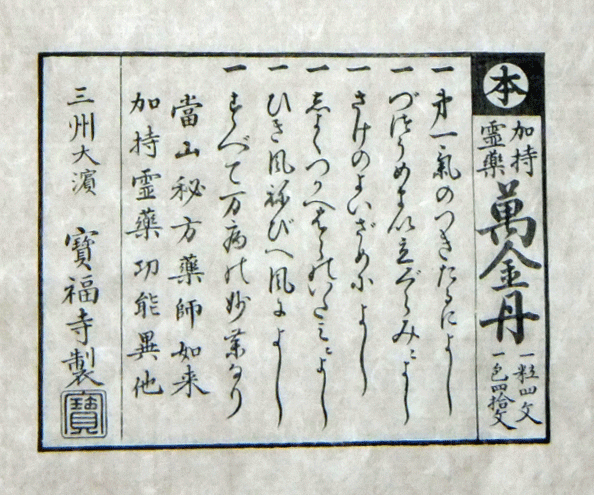 本
加持
霊藥
萬金丹
一粒四文
一包四拾文
一 第一氣のつきたるによし
一 づつうめまい立ぐらみによし
一 さけのよいざめによし
一 志よくつかへはらのいたみによし
一 ひき風ねびへ風によし
一 すべて万病の妙薬なり
當山秘方藥師如来
加持霊藥功能異他
三州大濱 寶福寺製
寶